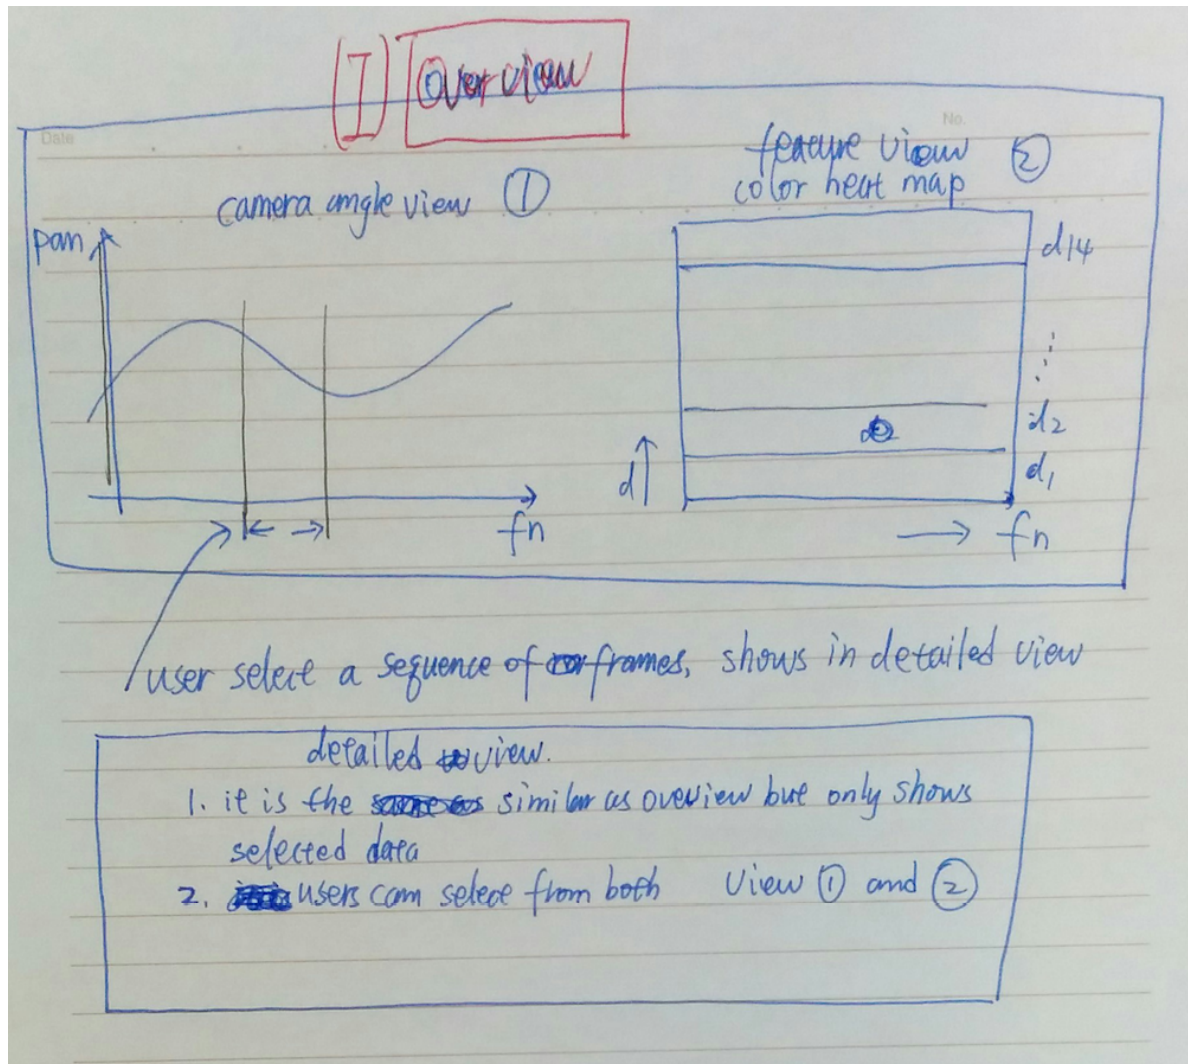 (I) Overview
Date
No.
camera angle view ①
feature view ②
color heat map
pan
fn
d14
d2
d1
d
fn
user select a sequence of frames, shows in detailed view
detailed view.
1. it is the similar as overview but only shows
selected data
2. users can select from both view ① and ②